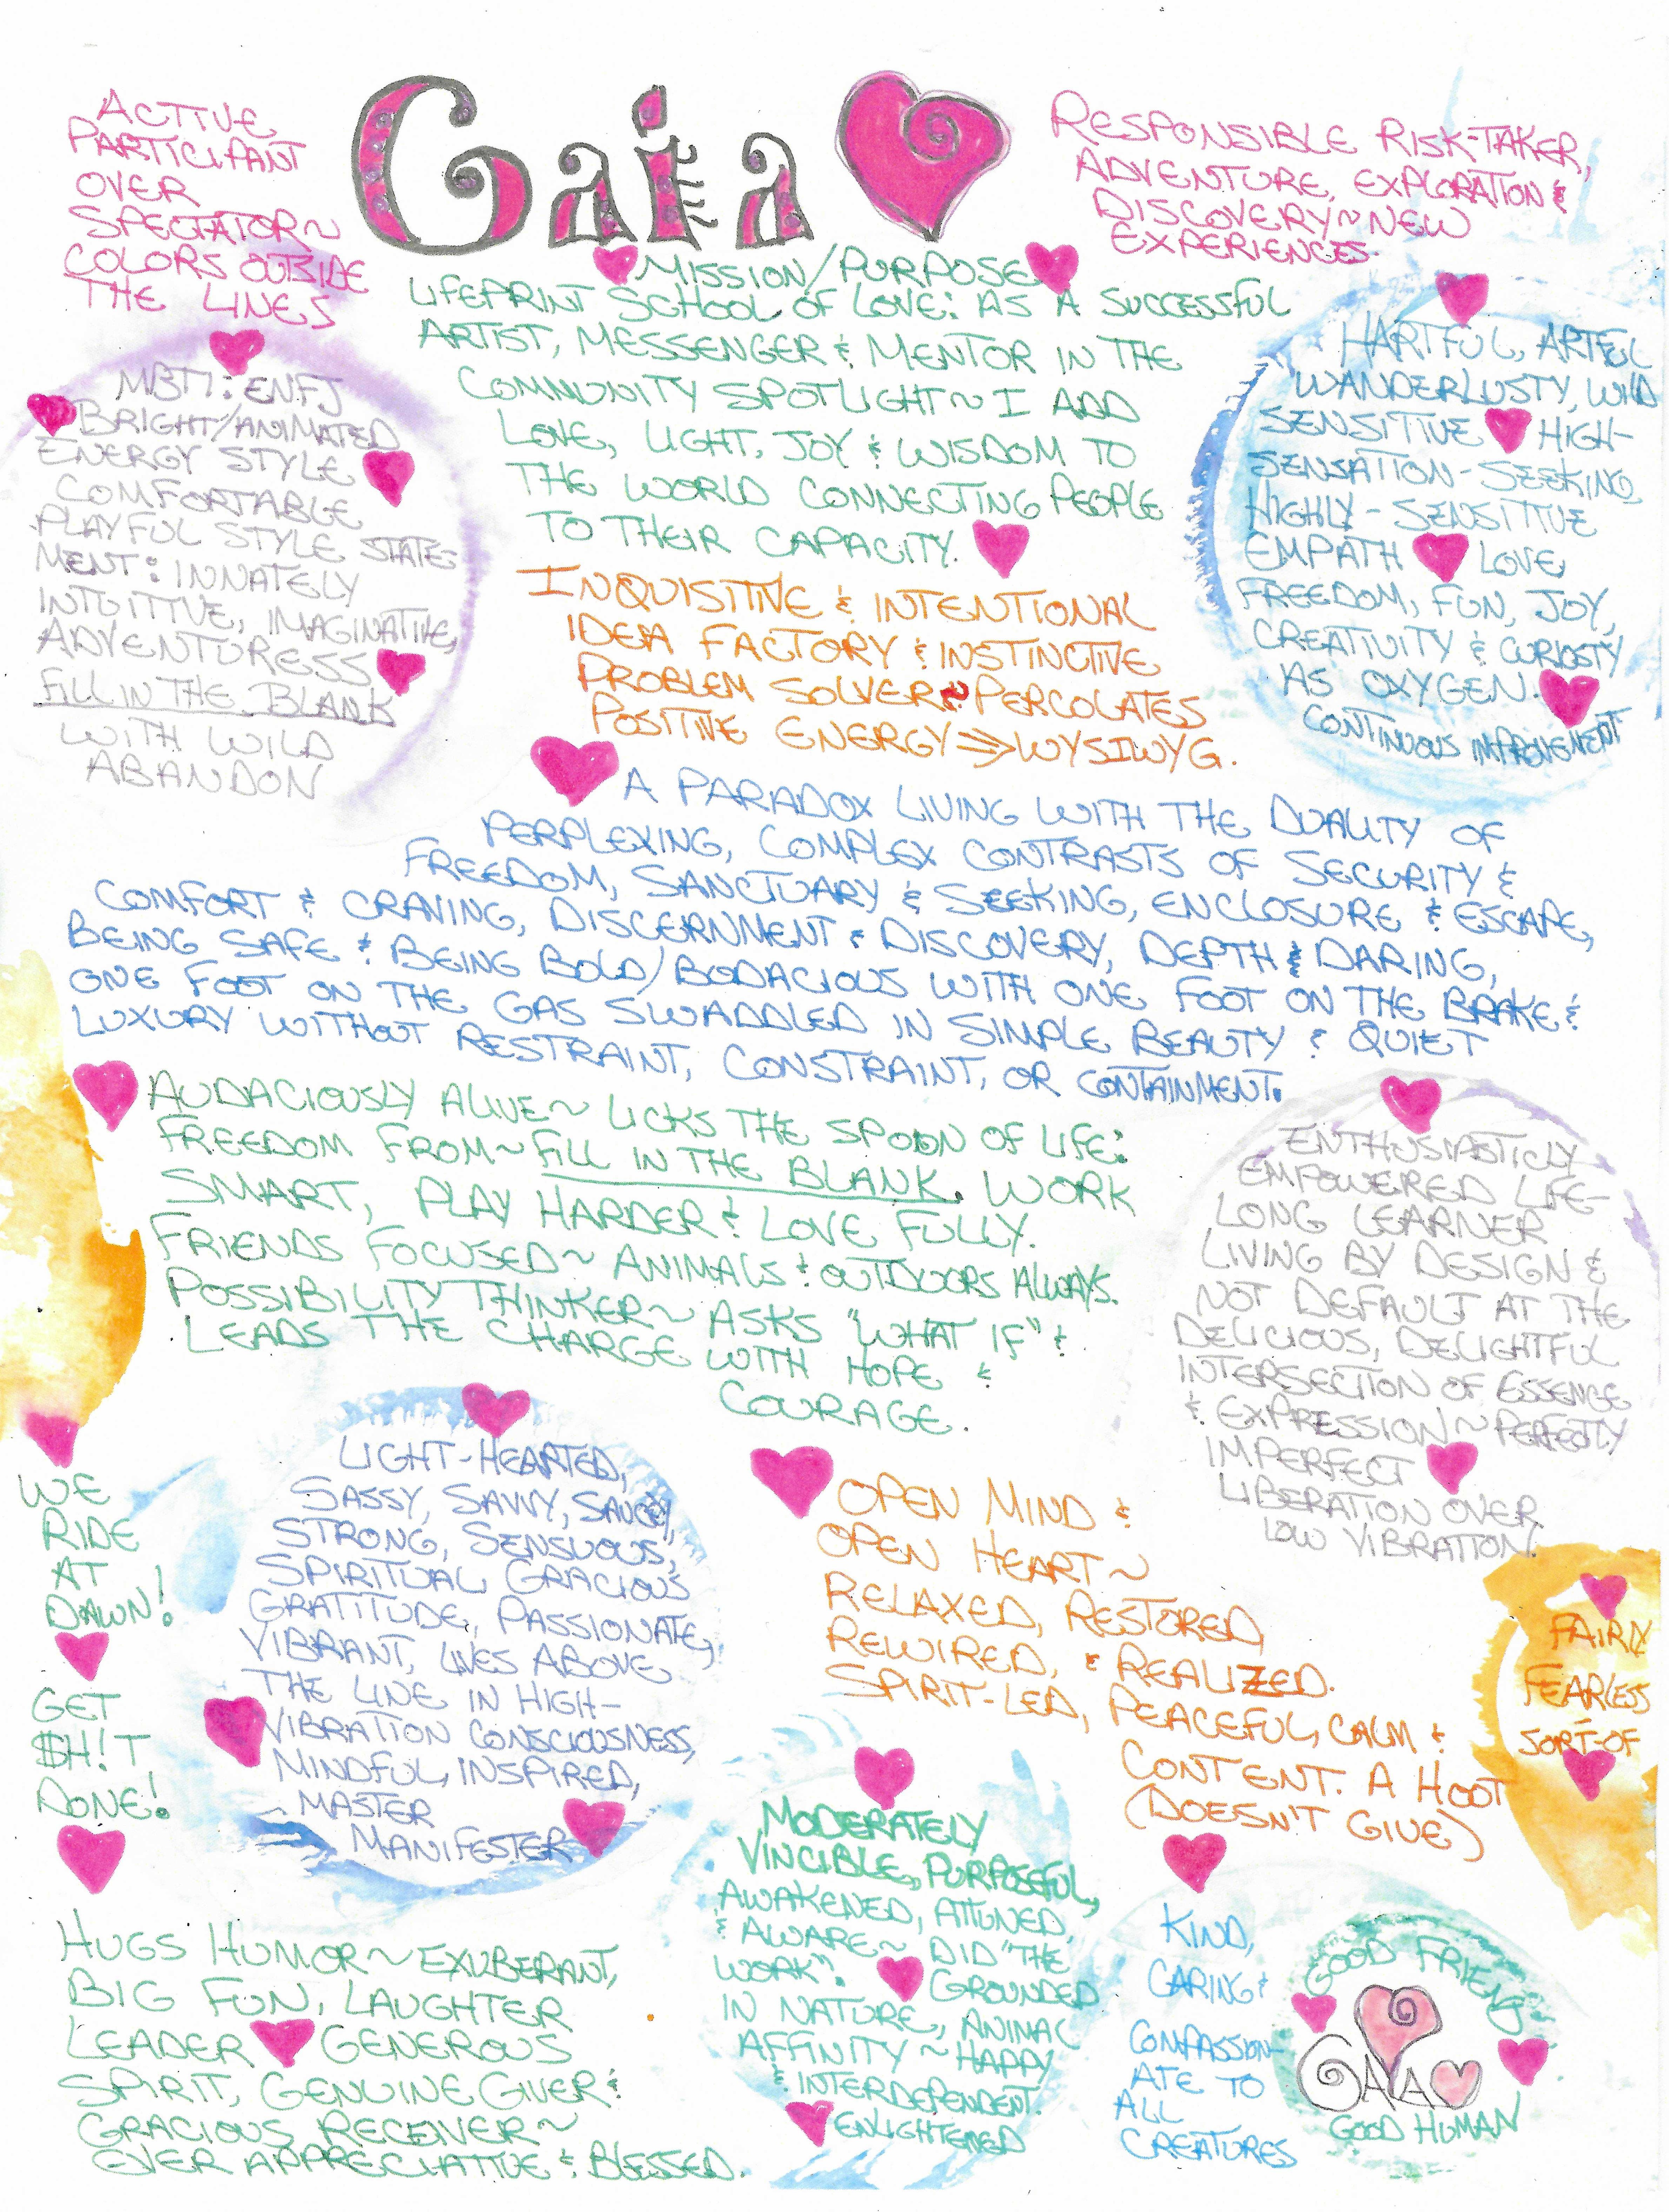 Gaia
ACTIVE
PARTICIPANT
OVER
SPECTATOR~
COLORS OUTSIDE
THE LINES
RESPONSIBLE RISK-TAKER,
ADVENTURE, EXPLORATION &
DISCOVERY~NEW
EXPERIENCES.
MISSION/PURPOSE
LIFEPRINT SCHOOL OF LOVE: AS A SUCCESSFUL
ARTIST, MESSENGER & MENTOR IN THE
COMMUNITY SPOTLIGHT~I ADD
LOVE, LIGHT, JOY & WISDOM TO
THE WORLD CONNECTING PEOPLE
TO THEIR CAPACITY.
MBTI: ENFJ
BRIGHT/ANIMATED
ENERGY STYLE
COMFORTABLE
PLAYFUL STYLE STATE-
MENT: INNATELY
INTUITIVE, IMAGINATIVE,
ADVENTURESS
FILL IN THE BLANK
WITH WILD
ABANDON
HARTFUL, ARTFUL
WANDERLUSTY, WILD
SENSITIVE HIGH-
SENSATION-SEEKING
HIGHLY-SENSITIVE
EMPATH LOVE,
FREEDOM, FUN, JOY,
CREATIVITY & CURIOSTY
AS OXYGEN.
CONTINUOUS IMPROVEMENT
INQUISITIVE & INTENTIONAL
IDEA FACTORY & INSTINCTIVE
PROBLEM SOLVER~PERCOLATES
POSITIVE ENERGY⇒WYSIWYG.
A PARADOX LIVING WITH THE DUALITY OF
PERPLEXING, COMPLEX CONTRASTS OF SECURITY &
FREEDOM, SANCTUARY & SEEKING, ENCLOSURE & ESCAPE,
COMFORT & CRAVING, DISCERNMENT & DISCOVERY, DEPTH & DARING,
BEING SAFE & BEING BOLD/BODACIOUS WITH ONE FOOT ON THE BRAKE &
ONE FOOT ON THE GAS SWADDLED IN SIMPLE BEAUTY & QUIET
LUXURY WITHOUT RESTRAINT, CONSTRAINT, OR CONTAINMENT.
AUDACIOUSLY ALIVE~LICKS THE SPOON OF LIFE:
FREEDOM FROM~FILL IN THE BLANK. WORK
SMART, PLAY HARDER & LOVE FULLY.
FRIENDS FOCUSED~ANIMALS & OUTDOORS ALWAYS.
POSSIBILITY THINKER~ASKS "WHAT IF" &
LEADS THE CHARGE WITH HOPE &
COURAGE.
ENTHUSIASTICLY
EMPOWERED LIFE-
LONG LEARNER
LIVING BY DESIGN &
NOT DEFAULT AT THE
DELICIOUS, DELIGHTFUL
INTERSECTION OF ESSENCE
& EXPRESSION~PERFECTLY
IMPERFECT
LIBERATION OVER
LOW VIBRATION.
WE
RIDE
AT
DAWN!
GET
$H!T
DONE!
LIGHT-HEARTED,
SASSY, SAVVY, SAUCY,
STRONG, SENSUOUS,
SPIRITUAL GRACIOUS
GRATITUDE, PASSIONATE,
VIBRANT, LIVES ABOVE
THE LINE IN HIGH-
VIBRATION CONSCIOUSNESS,
MINDFUL, INSPIRED,
MASTER
MANIFESTER
OPEN MIND &
OPEN HEART~
RELAXED, RESTORED,
REWIRED, & REALIZED.
SPIRIT-LED, PEACEFUL, CALM &
CONTENT. A HOOT
(DOESN'T GIVE)
FAIRLY
FEARLESS
SORT-OF
HUGS HUMOR~EXUBERANT,
BIG FUN, LAUGHTER
LEADER GENEROUS
SPIRIT, GENUINE GIVER &
GRACIOUS RECEIVER~
EVER APPRECIATIVE & BLESSED.
MODERATELY
VINCIBLE, PURPOSEFUL,
AWAKENED, ATTUNED,
& AWARE~DID "THE
WORK". GROUNDED
IN NATURE, ANIMAL
AFFINITY~HAPPY
& INTERDEPENDENT.
ENLIGHTENED
KIND,
CARING &
COMPASSION-
ATE TO
ALL
CREATURES
GOOD FRIEND
GAIA
GOOD HUMAN